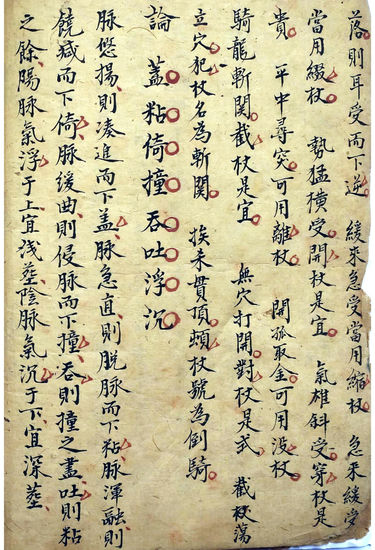 落則耳受而下逆 緩来急受當用縮杖 急来緩受
當用綴杖 勢猛横受開杖是宜 氣雄斜受穿杖是
貴 平中尋突可用離杖 開孤取金可用没杖
騎龍斬関截杖是宜 無穴打開對杖是式 截杖蕩
立穴犯杖名為斬關 挨来貫頂頓杖號為倒騎
論 蓋粘倚撞吞吐浮沉
脉悠揚則凑進而下蓋脉急直則脱脉而下粘脉渾融則
饒减而下倚脉緩曲則侵脉而下撞吞則撞之盡吐則粘
之餘陽脉氣浮于上宜浅葬陰脉氣沉于下宜深葬